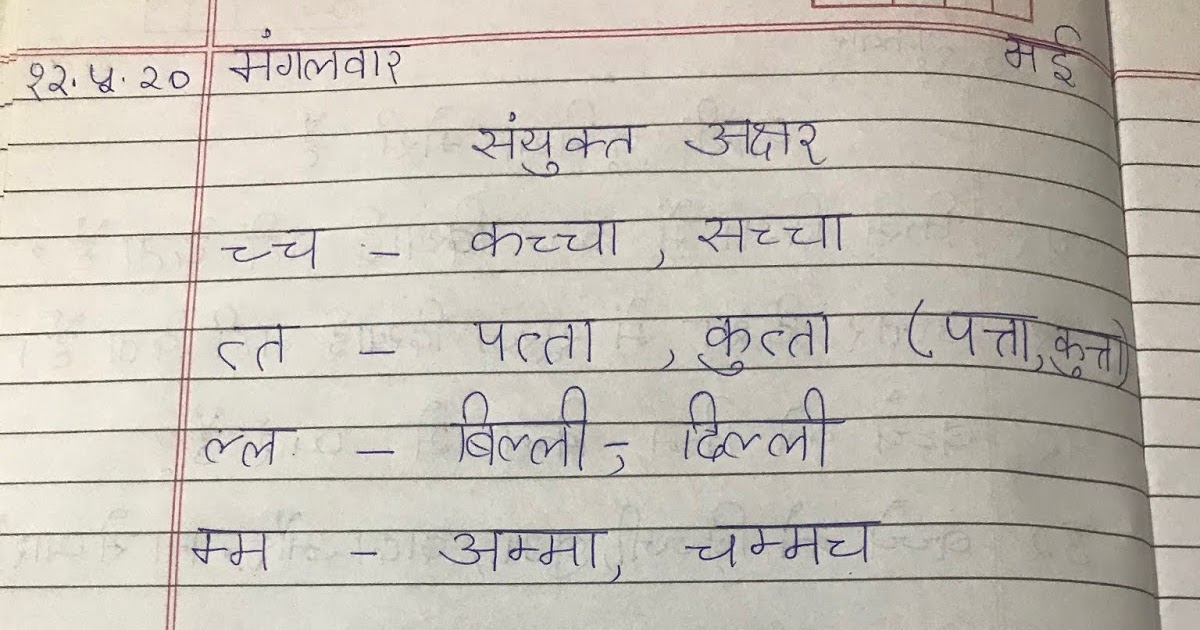 १२.५.२० मंगलवार मई
संयुक्त अक्षर
च्च - कच्चा, सच्चा
त्त - पत्ता, कुत्ता (पत्ता, कुत्ता)
ल्ल - बिल्ली, दिल्ली
म्म - अम्मा, चम्मच